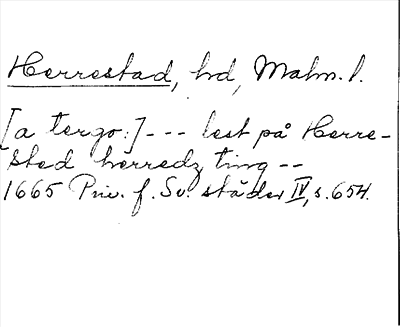 Herrestad, hd, Malm. l.
[a tergo:] - - - lest på Herre-
sted herredz ting - -
1665 Priv. f. Sv. städer IV, s. 654.